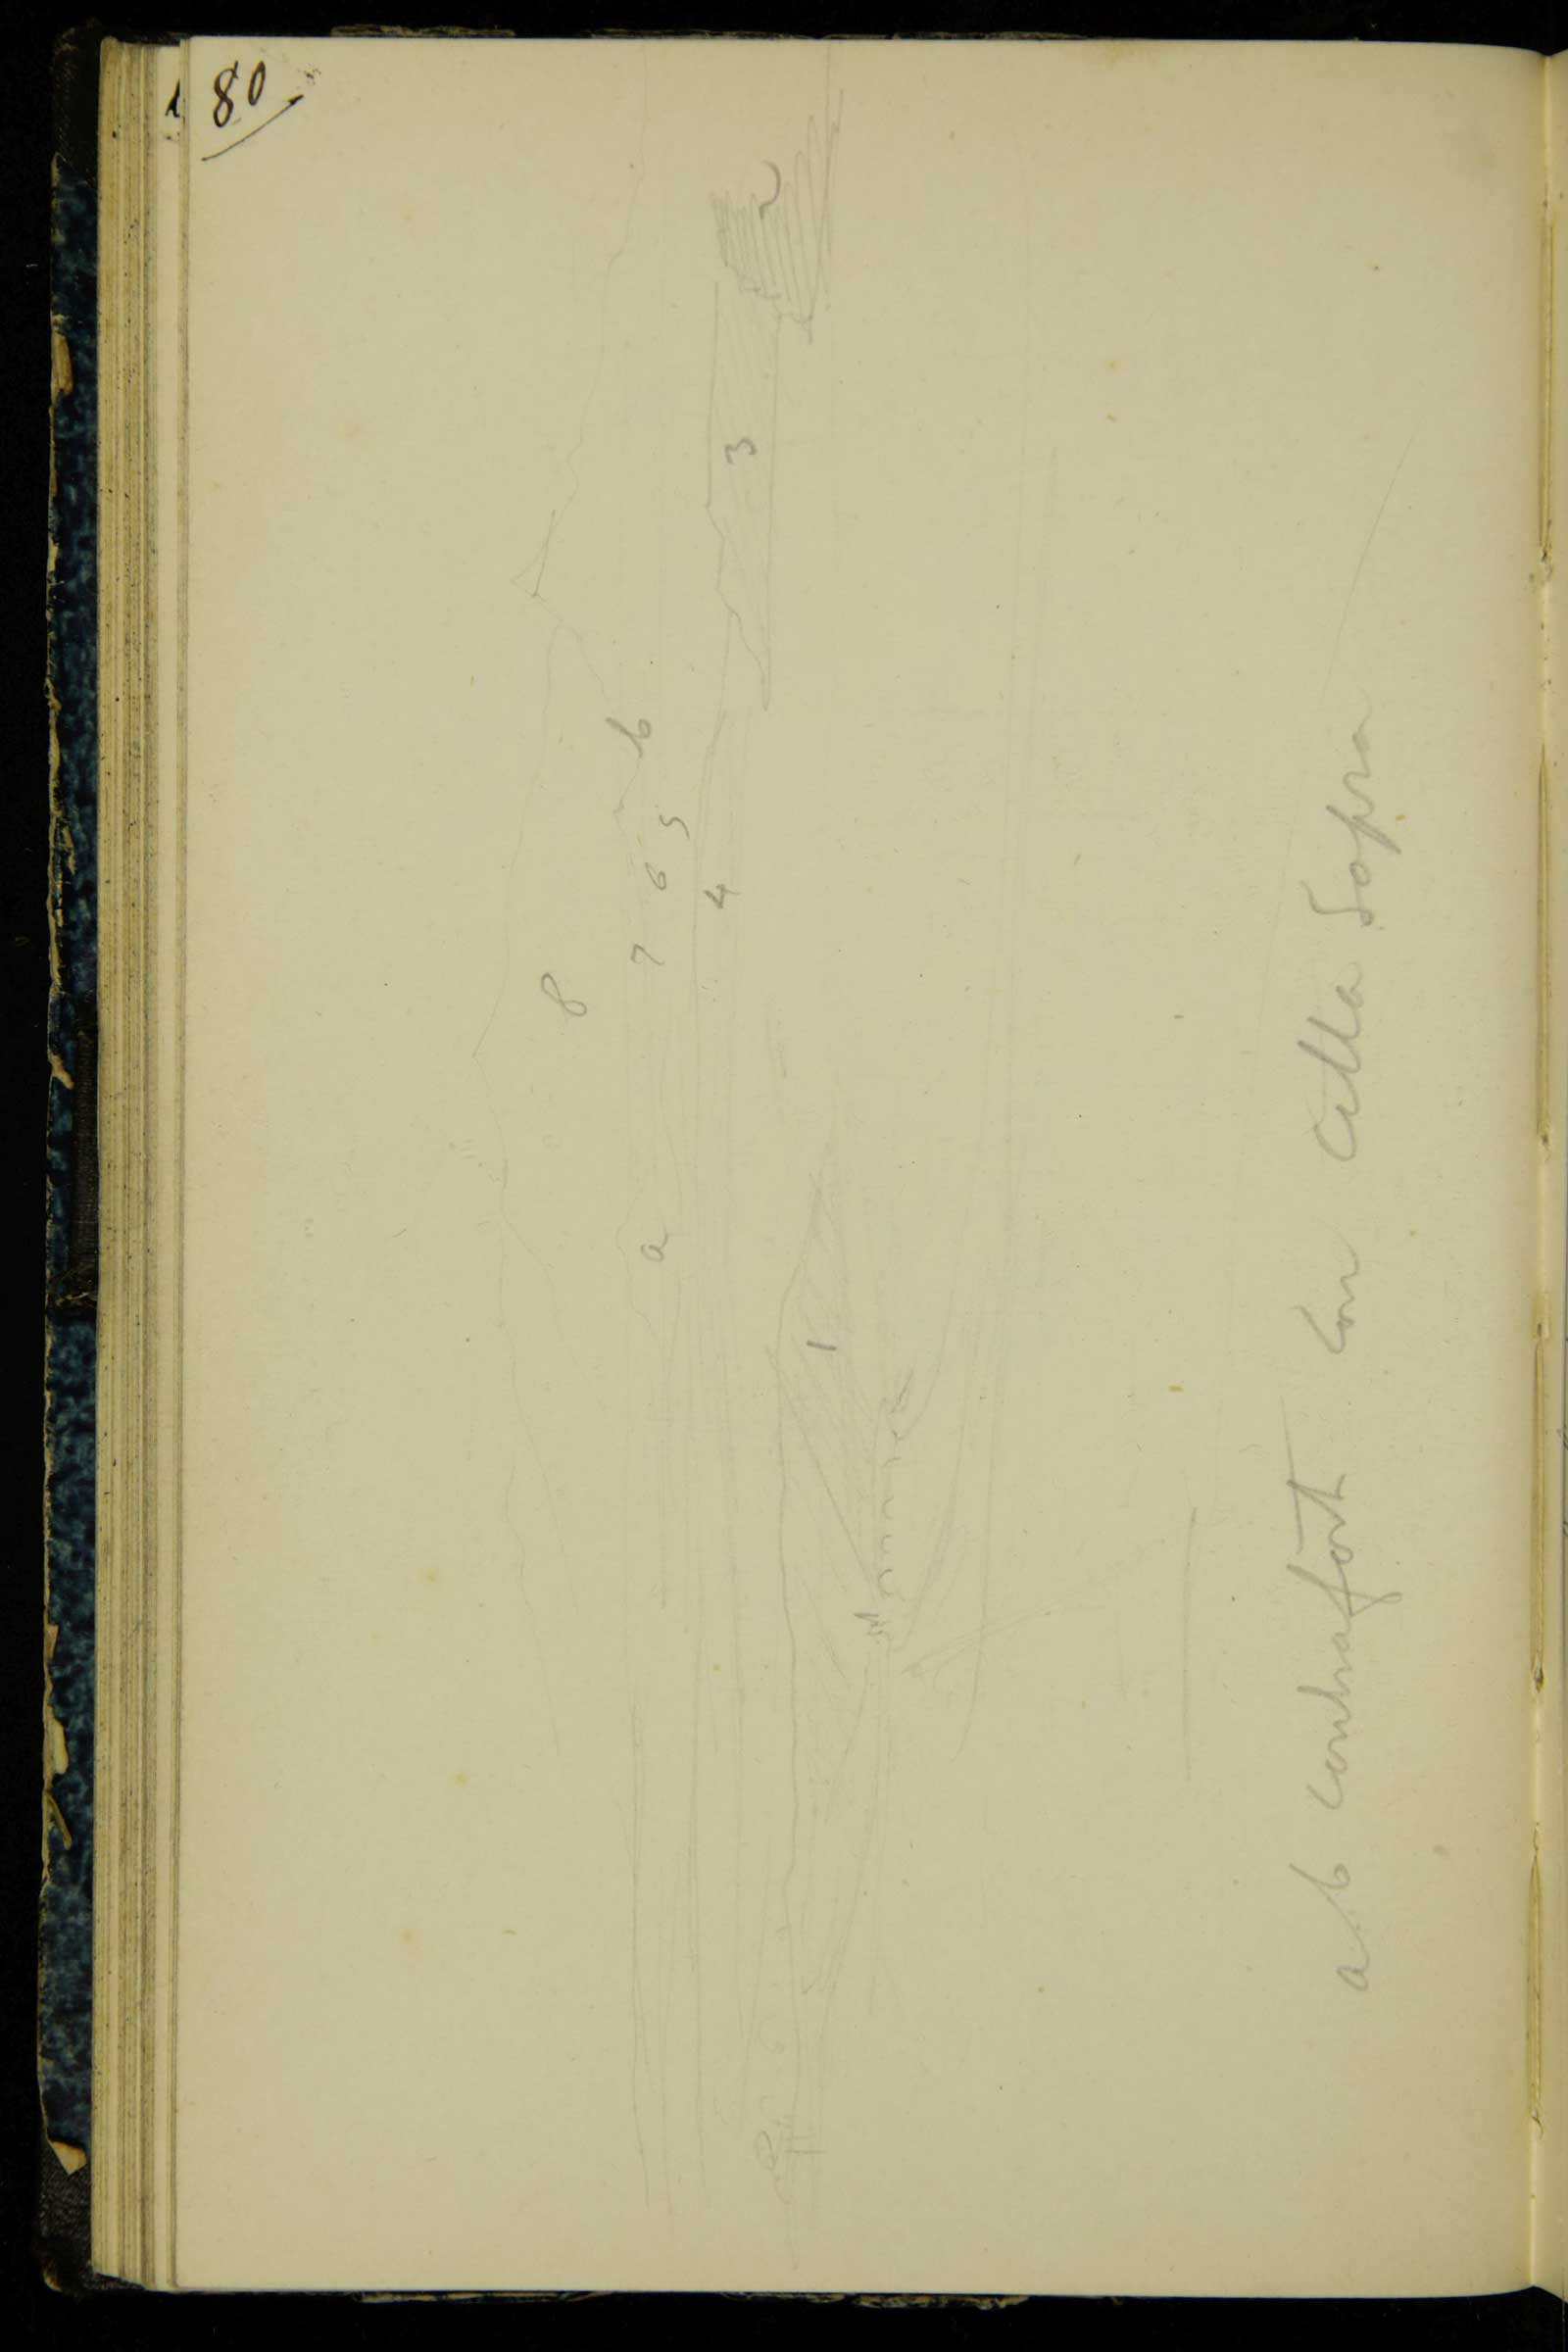 80
8
b
7 6 5
a
4
3
1
a b contrafort con cella sopra